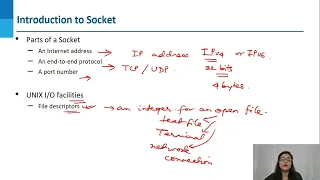 Introduction to Socket
Parts of a Socket
An Internet address → IP address IPv4 or IPv6
An end-to-end protocol → TCP / UDP. 32 bits
A port number 4 bytes
UNIX I/O facilities
File descriptors → an integer for an open file.
text file
Terminal
network connection